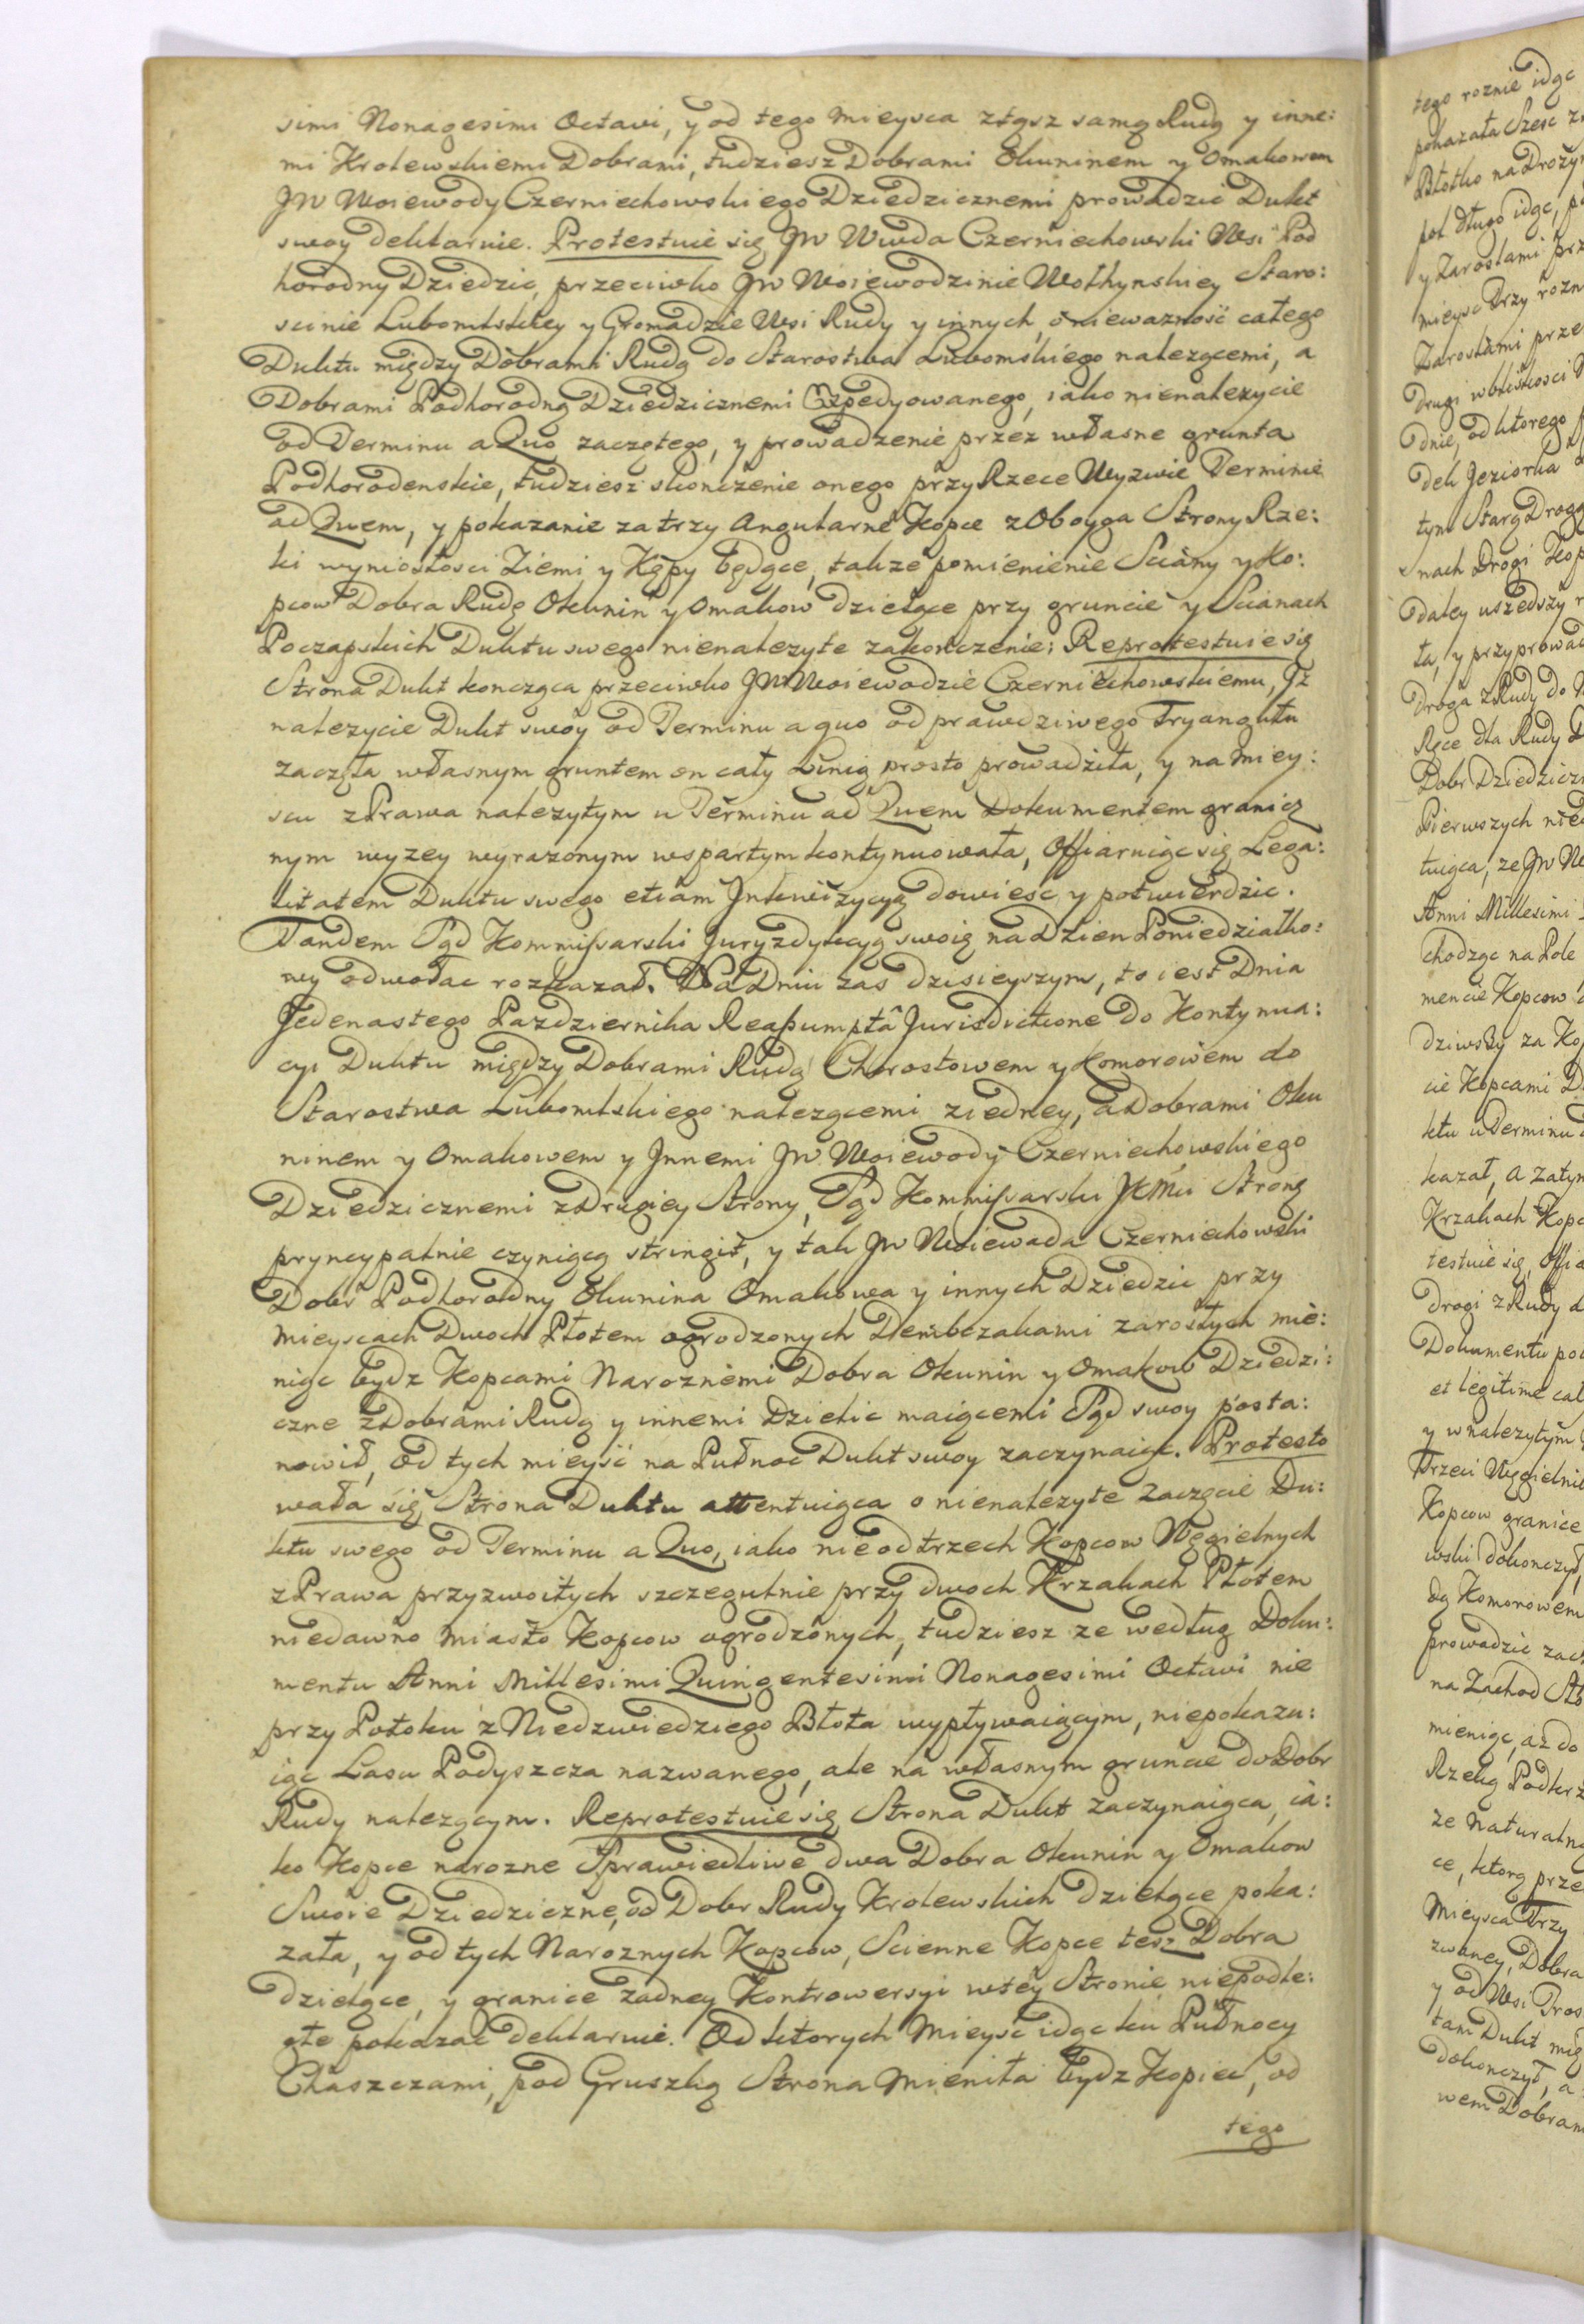 simi Nonagesimi Octavi, y od tego Mieysca ztąsz samą Rudą y inne:
mi Krolewskiemi Dobrami, tudziesz Dobrami Okuninem y Omakowem
JW Woiewody Czerniechowskiego Dziedzicznemi prowadzic Dukt
swoy deklaruie. Protestuie się JW Wwda Czerniechowski Wsi Pod
horodny Dziedzic, przeciwko JW Woiewodzinie Wołhynskiey Staro:
scinie Lubomlskiey y Gromadzie Wsi Rudy y innych, o niewaznosć całego
Duktu między Dobrami Rudą do Starostwa Lubomskiego nalezącemi, a
Dobrami Podhorodną Dziedzicznemi Expedyowanego, iako nienalezycie
od Terminu a Quo zaczętego, y prowadzenie przez własne grunta
Podhorodenskie, tudziesz skonczenie onego przy Rzece Wyzwie Terminie
ad Quem, y pokazanie za trzy Angularne Kopce z Oboyga Strony Rze:
ki wyniosłosci Ziemi y Kępy będące, takze pomienienie Sciany y Ko:
pcow Dobra Rudę Okunin y Omakow dzielące przy gruncie y Scianach
Poczapskich Duktu swego nienalezyte zakonczenie; Reprotestuie się
Strona Dukt konczącа przeciwko JW Woiewodzie Czerniechowskiemu, Jz
nalezycie Dukt swoy od Terminu a quo od prawdziwego Tryangułu
zaczęła własnym gruntem on cały Linią prosto prowadziła, y na Miey:
scu z Prawa nalezytym u Terminu ad Quem Dokumentem granicz
nym wyzey wyrazonym wspartym kontynuowała, Offiaruiąc się Lega:
litatem Duktu swego etiam Jnkwizycyą dowiesc y potwierdzic.
Tandem Sąd Kommissarski Juryzdykcyą swoię na Dzien Poniedziałko:
wy odwołac rozkazał. Na Dniu zas dzisieyszym, to iest Dnia
Jedenastego Pazdziernika Reassumptâ Jurisdictione do Kontynua:
cyi Duktu między Dobrami Rudą Chorostowem y Komorowem do
Starostwa Lubomlskiego nalezącemi z iedney, a Dobrami Oku
ninem y Omakowem y Jnnemi JW Woiewody Czerniechowskiego
Dziedzicznemi z Drugiey Strony, Sąd Kommissarski Strong
pryncypalnie czyniącą stringit, y tak JW Woiewoda Czerniechowski
Dobr Podhorodny Okunina Omakowa y innych Dziedzic przy
Mieyscach Dwoch Płotem ogrodzonych Dembczakami zarosłych mie:
niąc bydz Kopcami Naroznemi Dobra Okunin y Omakow Dziedzi:
czne z Dobrami Rudą y innemi Dzielic maiącemi Sąd swoy posta:
nowił, Od tych mieysc na Pułnoc Dukt swoy zaczynaiąc. Protesto
wała się Strona Duktu attentuiąca o nienalezyte Zaczęcie Du:
ktu swego od Terminu a Quo, iako nie od trzech Kopcow Węgielnych
z Prawa przyzwoitych szczegulnie przy dwoch Krzakach Płotem
niedawno Miasto Kopcow ogrodzonych, tudziesz ze według Doku:
mentu Anni Millesimi Quingentesimi Nonagesimi Octavi nie
przy Potoku z Niedzwiedziego Błota wypływaiącym, niepokazu:
iąc Lasu Podyszcza nazwanego, ale na własnym gruncie do Dobr
Rudy nalezącym. Reprotestuie się Strona Dukt Zaczynaiąca, ia:
ko Kopce narozne Sprawiedliwe dwa Dobra Okunin y Omakow
Swoie Dziedziczne, od Dobr Rudy Krolewskich dzielące poka:
zała, y od tych Naroznych Kopcow, Scienne Kopce tesz Dobra
dzielące, y granice zadney Kontrowersyi w tey Stronie niepodle:
głe pokazac deklaruie. Od ktorych Mieysc idąc ku Pułnocy
Chaszczami, pod Gruszką Strona Mieniła bydz Kopiec, od
tego
tego roznie idąc
pokazała Szesc
Błotko na
poł długo idąc,
y Zaroslami
mieysc Trzy
Zaroslami
Drugi w bliskosci
dnie, od ktorego
dek Jeziorka
tym Starą Drogą
nach Drogi
daley uszedszy
ta, y
Droga z Rudy do
Ręce dla Rudy
Dobr
Pierwszych
tuiąca, ze JW
Anni Millesimi
chodząc na Pole
mencie Kopcow
dziwszy za
cie Kopcami
ktu u Terminu
kazał, a zatym
Krzakach
testuie się,
drogi z Rudy
Dokumentu
et legitime
y w nalezytym
Trzeci
Kopcow granice
wski dokonczył,
dą Komorowem
prowadzic
na Zachod
mieniąc, az do
Rzekę
ze
ce, ktorą
Mieysca Trzy
zwaney, Dobra
y od Wsi
tam Dukt
dokonczył, a
wem